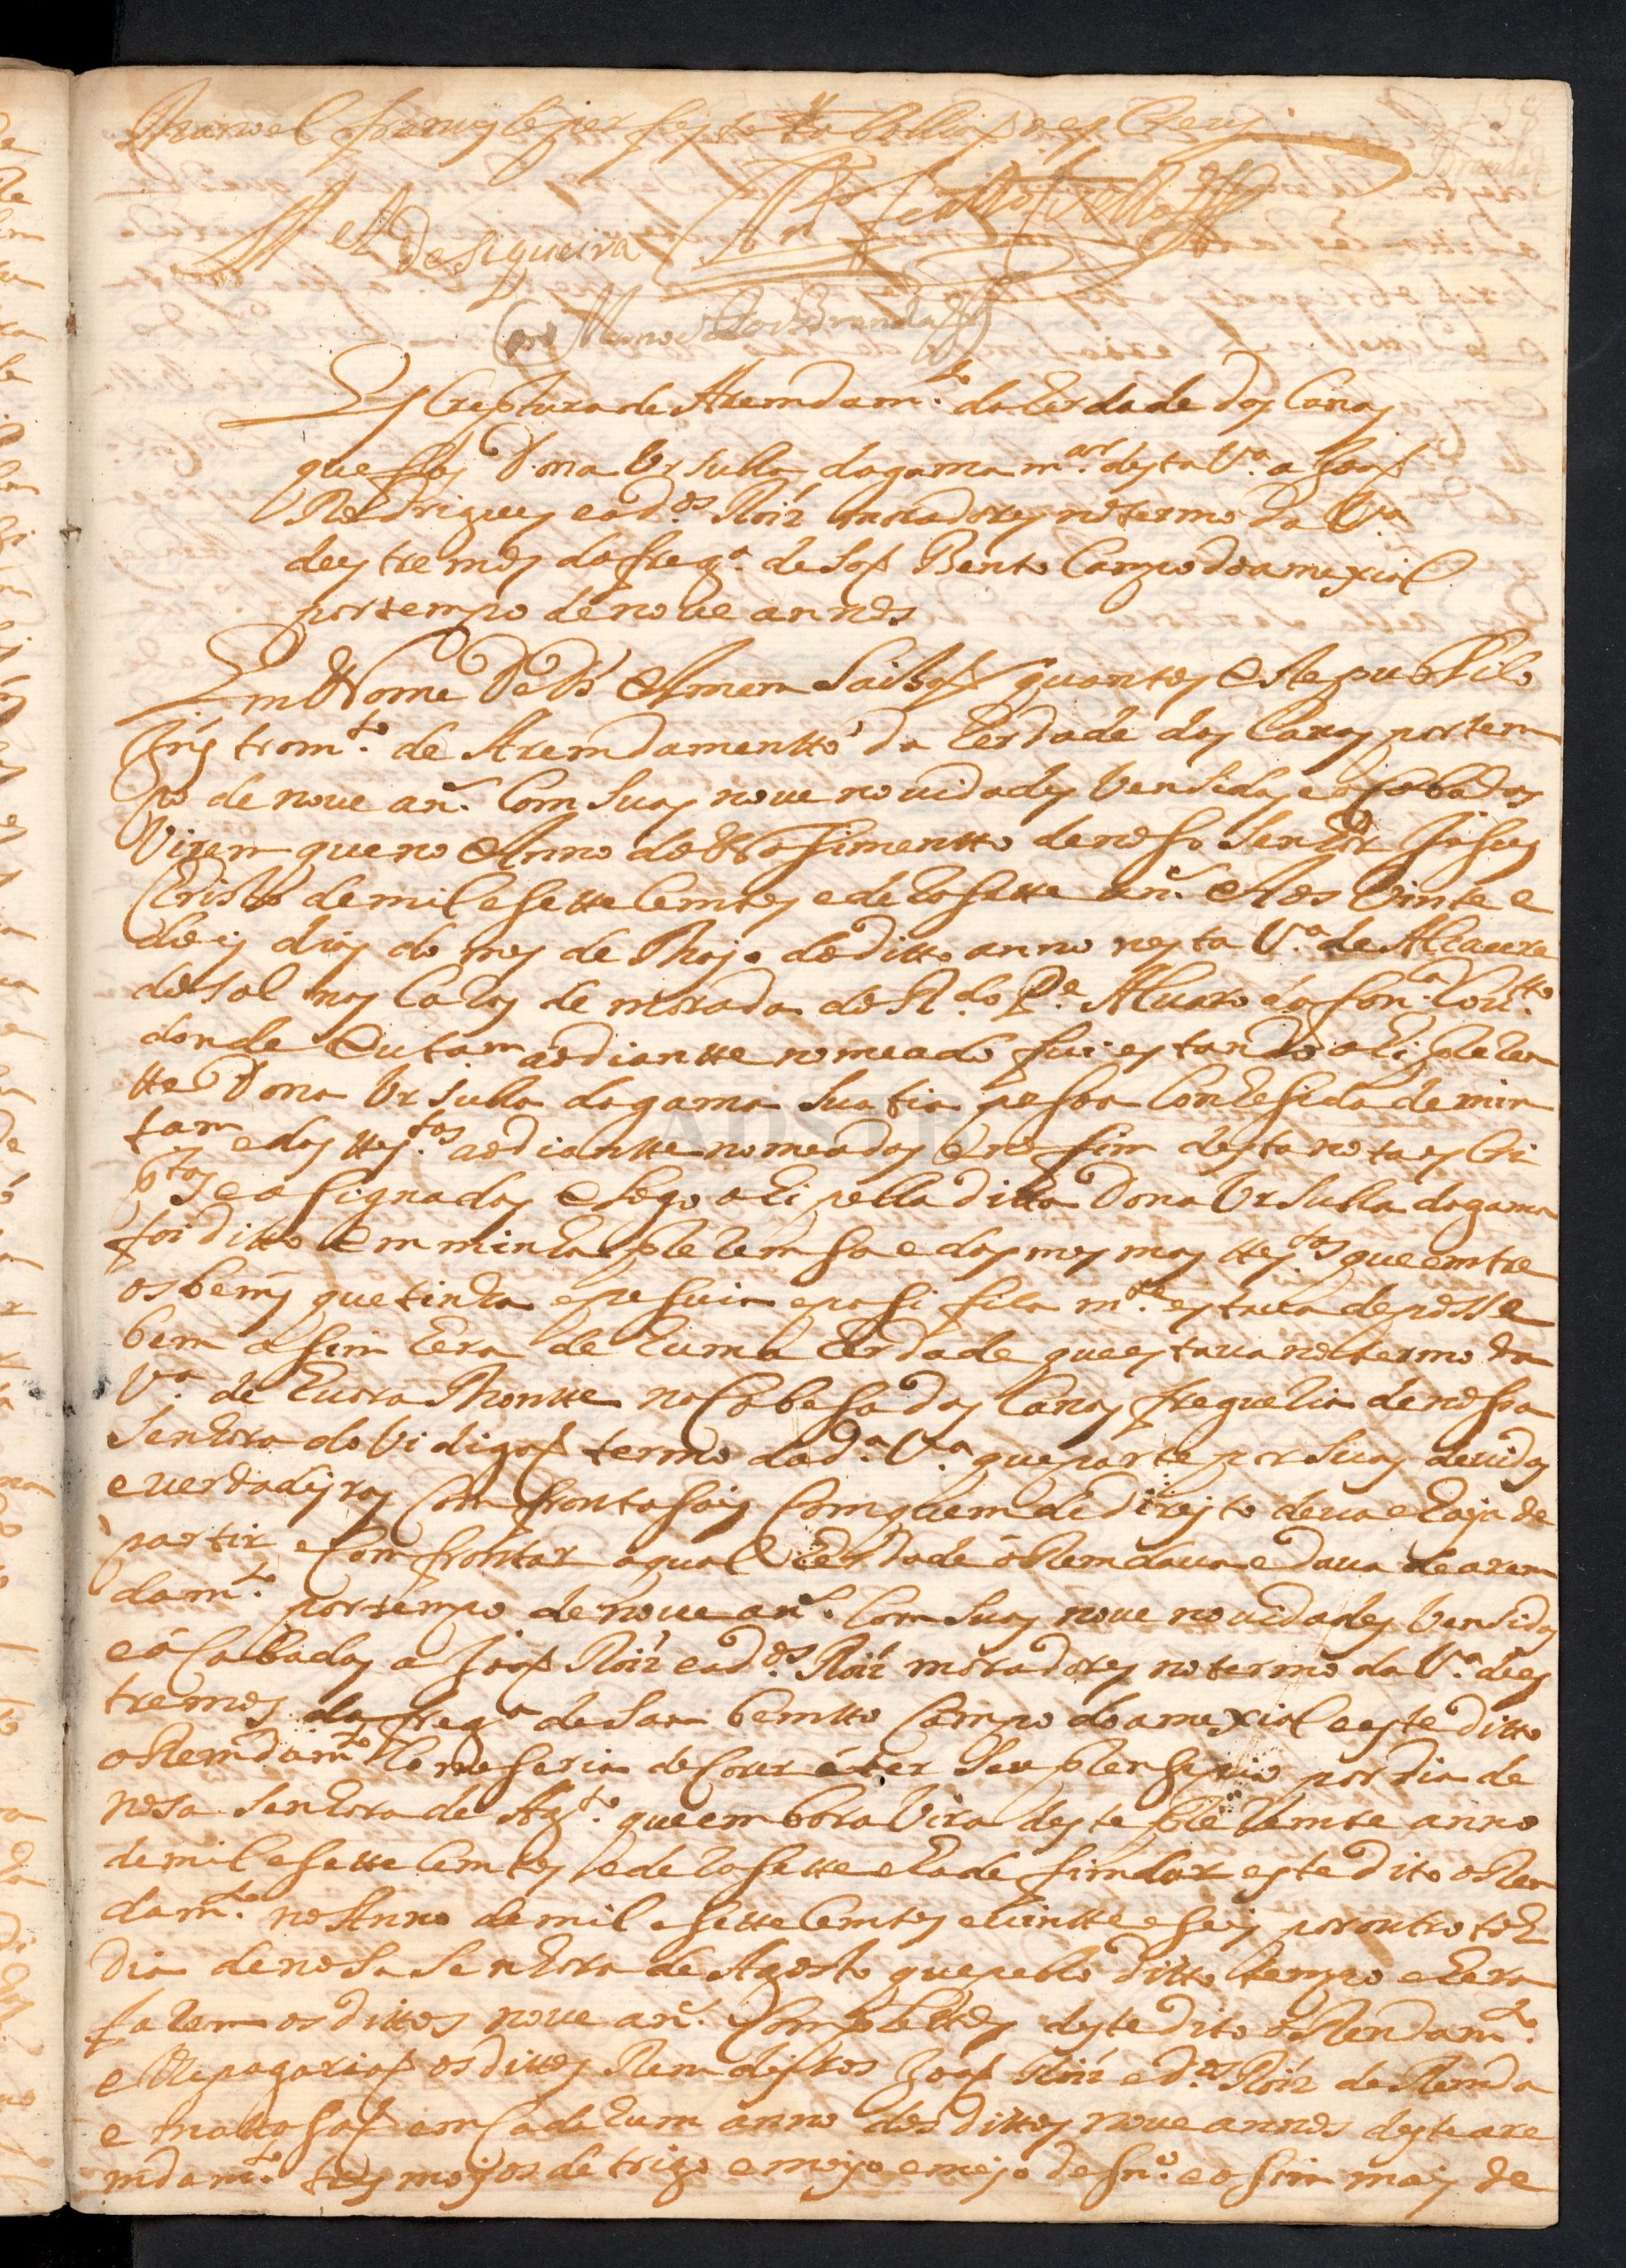 Manoel
de Siqueira
Manoel Brandaõ
Escreptura de Aremdam.to da Erdade dos Canas
que fas Dona Ursulla dagama m.or desta V.a a Joaõ
Rodrigues e a D.os Roiz moradores no termo da V.a
de estremos da freg.a de Saõ Bento Campo do amexial
por tempo de nove annos
Em Nome De D.s Amen Saibaõ quantos este publico
Instrom.to de Aremdamentto da Erdade dos Canas por tem
po de nove an.s Com Suas nove novidades Vensidas e acabadas
Virem que no Anno do Nasimentto de noso Senhor Jesus
Christo de mil e sette Cemtos e dezasette an.s Aos Vinte e
dois dias do mes de Mayo do ditto anno nesta V.a de Alcacere
do Sal nas Cazas de morada do R.do P.e Alvaro da Fon.ca Cou.tto
donde eu tam adiantte nomeado fui estando ahi prezen
tte Dona Ursulla dagama Sua tia pesoa Conhesida de mim
tam e das ttes.tas adiantte nomeadas e no fim desta nota escri
ptas e asignadas e Logo ahi pella ditta Dona Ursulla dagama
foi ditto em minha prezemsa e das mesmas ttes.tas que emtre
os bems que tinha e pesuia e pasificam.te estava de posse
bem asim hera de huma Erdade que estava no termo da
V.a de Evora Montte no Cabesa das Canas freguezia de nosa
Senhora do Vidigaõ termo da d.a V.a que parte por Suas devidas
e verdadeyras Comfrontasois Com quem de direyto deva e haja de
partir e Comfrontar a qual Erdade aRemdava e dava de arem
dam.to por tempo de nove an.s Com Suas nove novidades Vensidas
e aCabadas a Joaõ Roiz e a D.os Roiz moradores no termo da V.a de es
tremos da freg.a de Sam bemtto Campo do amexial e este ditto
aRemdam.to Comesaria de Correr e ter Seu prensipio por dia de
nosa Senhora de Ag.to que embora Vira deste prezemte anno
de mil e sette Cemtos e dezasette e hade fimdar este dito aRen
dam.to no Anno de mil e sette Cemtos e vintte e seis por outro tal
dia de nosa Senhora de Agosto que pello ditto tempo e hera
fazem os dittos nove an.s Complettos deste dito aRendam.to
e lhe pagariaõ os dittos Remdeyros Joaõ Roiz e D.os Roiz de Remda
e em Cada hum anno dos dittos nove annos deste are
mdam.to tres moyos de trigo e moyo e meyo de e asim mais de